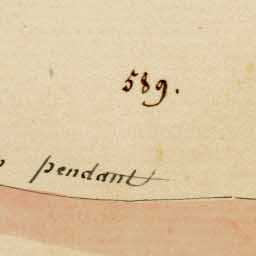 589.
pendant